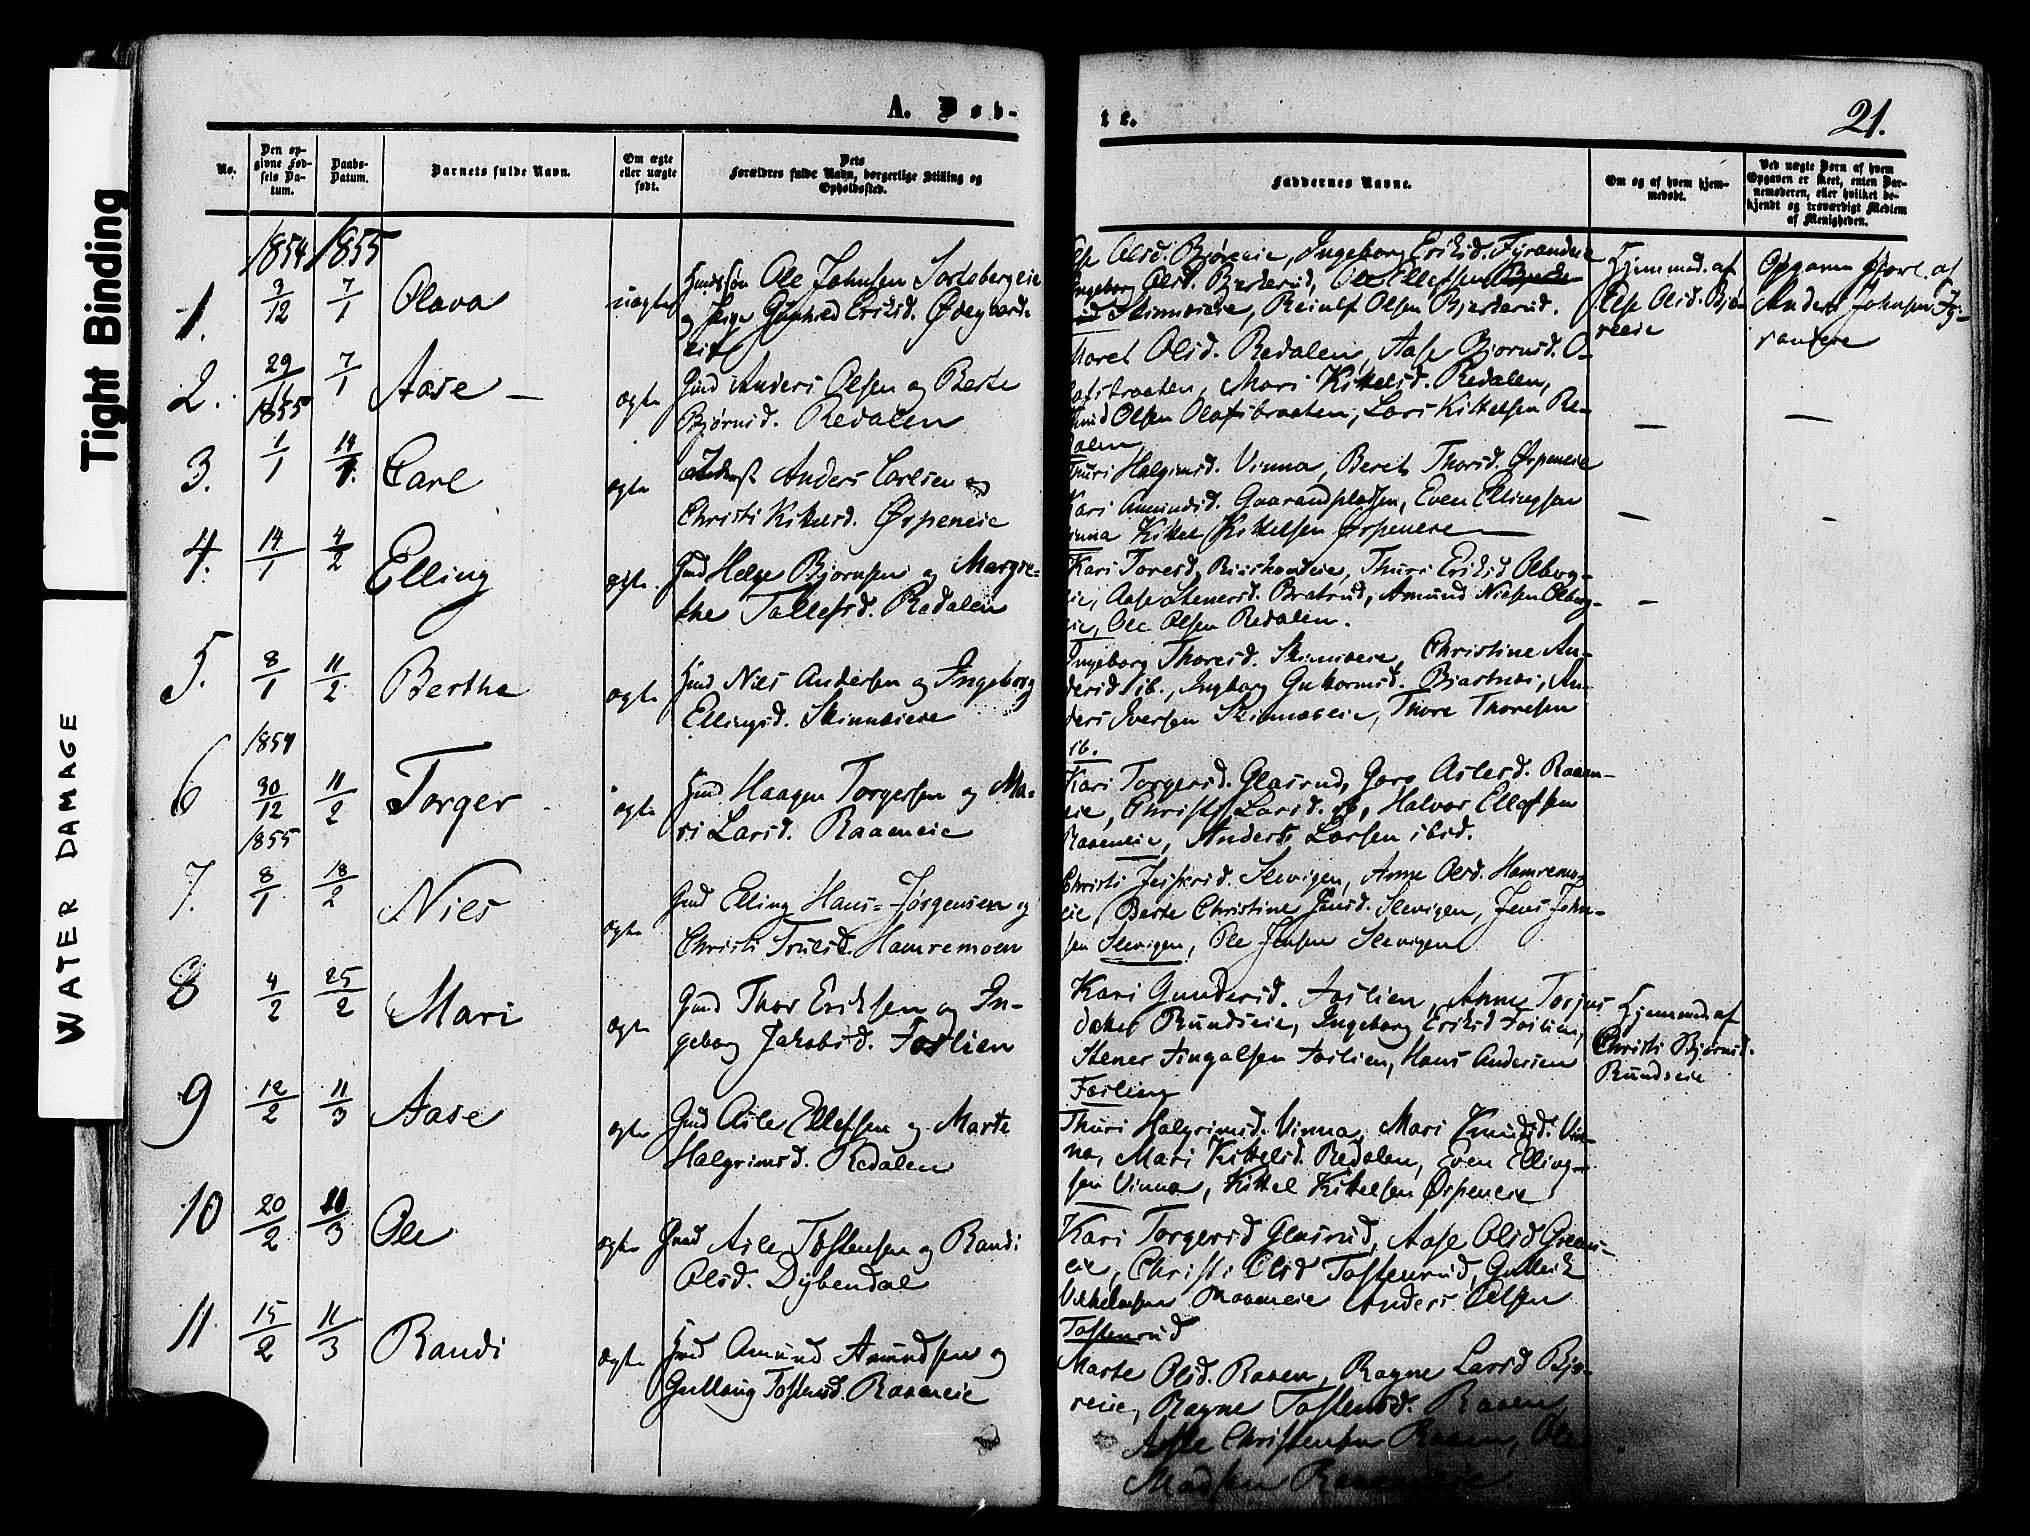 Tight Binding
WATER DAMAGE
A. Døb-
te.
21.
No.
Den op-
givne Fød-
sels Da-
tum.
Daabs-
Datum.
Barnets fulde Navn.
Om ægte
eller uægte
født.
Dets
Forældres fulde Navn, borgerlige Stilling og
Opholdssted.
Faddernes Navne.
Om og af hvem hjem-
medøbt.
Ved uægte Børn af hvem
Opgaven er skeet, enten Bar-
nemoderen, eller hvilket be-
kjendt og troværdigt Medlem
af Menigheden.
1854 1855
1. 9/12 7/1 Olava uægte
Ole Johnsen
og Pige Gunhild Eriksd. Ødegaards-
eie
Olsd. Bjøreeie, Ingeborg Eriksd. Fyrandeie
Ingeborg Olsd. Bjerkerud, Ole Ellefsen
Skinnæseie, Reiulf Olsen Bjerkerud.
Hjemmed. af
Olsd. Bjø-
reeie
Opgaven af
Anders Johnsen Fy-
randeie
2. 29/11 7/1 Aase ægte
Gmd Anders Olsen og Berte
Bjørnsd. Redalen
Thoret Olsd. Redalen, Aase Bjornsd. O-
lafsbraaten, Mari Kittelsd. Redalen,
Olsen Olafsbraaten, Lars Kittelsen Re-
dalen
—
—
1855
3. 1/1 14/1. Carl ægte
Anders Carlsen og
Christi Kittelsd. Ørpeneie
Thuri Halgrimsd. Vinna, Berit Thorsd. Ørpeneie
Kari Amundsd. Gaarandpladsen, Even Ellingsen
Vinna Kittel Kittelsen Ørpeneie
—
—
4. 14/1 4/2 Elling ægte.
Gmd Helge Bjornsen og Margre-
the Tollefsd. Redalen
Kari Toresd. Thuri Eriksd Olberg-
eie, Aase Stenersd. Bratrud, Amund Nielsen Olberg-
eie, Ole Olsen Redalen.
—
5. 8/1 11/2 Berthe ægte
Hmd Niels Andersen og Ingeborg
Ellingsd. Skinnæseie
Ingeborg Thoresd. Skinnæseie, Christine An-
dersd ib., Ingborg Guttormsd. Bjaatnæs, An-
ders Iversen Skinnæseie, Thore Thoresen
ib.
1854
6 30/12 11/2 Torger ægte
Hmd Haagen Torgersen og Ma-
ri Larsd. Raaeneie
Kari Torgersd. Glasrud, Goro Aslesd. Raaen-
eie, Christi Larsd. ib, Halvor Ellefsen
Raaeneie, Anders Larsen ibid.
1855
7. 8/1 18/2 Niels ægte
Gmd Elling Hans-Jørgensen og
Christi Trulsd. Hamremoen
Christi Jespersd. Slevigen, Anne Olsd. Hamremo-
eie, Berte Christine Jensd. Slevigen, Jens John-
sen Slevigen, Ole Jensen Slevigen
8 4/2 25/2 Mari ægte
Gmd Thor Eriksen og In-
geborg Jakobsd. Foslien
Kari Gundersd. Foslien, Anne Torjus
datter Rundseie, Ingeborg Eriksd Foslien,
Stener Fingalsen Foslien, Hans Andersen
Fosling
Hjemmed. af
Christi Bjørnsd.
Rundseie
9 12/2 11/3 Aase ægte
Gmd Asle Ellefsen og Marte
Halgrimsd. Redalen
Thuri Halgrimsd. Vinna, Mari Knudsd. Vin-
na, Mari Kittelsd. Redalen, Even Elling-
sen Vinna, Kittel Kittelsen Ørpeneie
10 20/2 11/3 Ole ægte
Gmd Asle Tostensen og Randi
Olsd. Dybendal
Kari Torgersd Glasrud, Aase Olsd Grønn-
eie, Christi Olsd Tostenrud, Gulleik
Vilhelmsen Raaeneie Anders Olsen
Tostenrud
11 15/2 11/3 Randi ægte
Hmd Amund Amundsen og
Gullaug Tostensd. Raaeneie
Marte Olsd. Raaen, Ragne Larsd Bjø-
reeie, Ragne Tostensd. Raaen
Asle Christensen Raaen, Ole
Madsen Raaeneie.